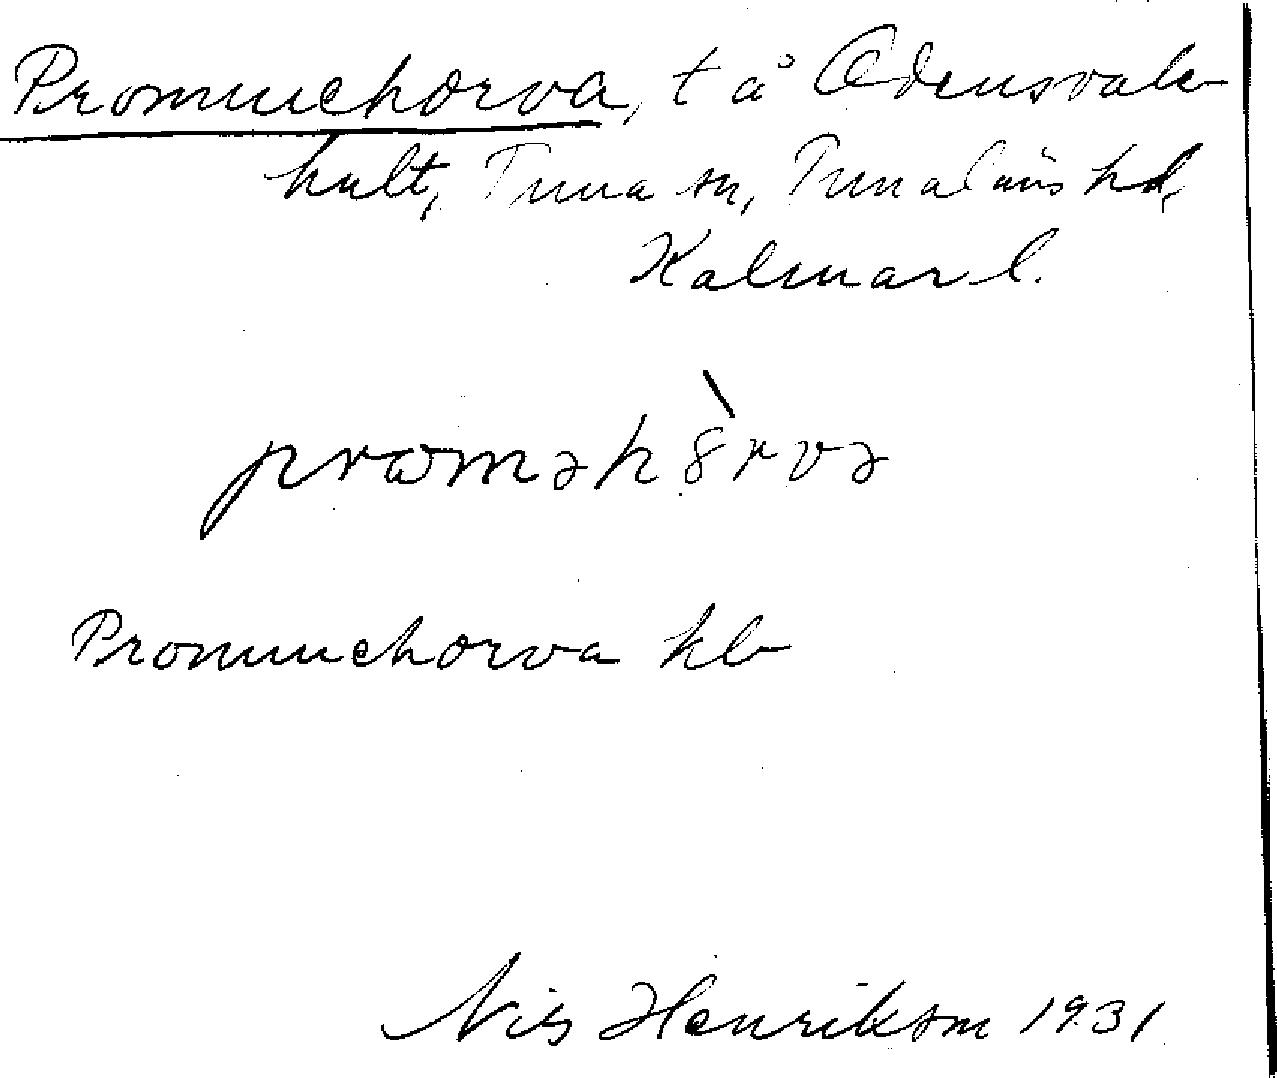 Prommehorva, t å Odensvale-
hult, Tuna sn, Tunaläns hd,
Kalmar l.
promɘhɘ̀rvɘ
Prommehorva kb
Nils Henrikson 1931